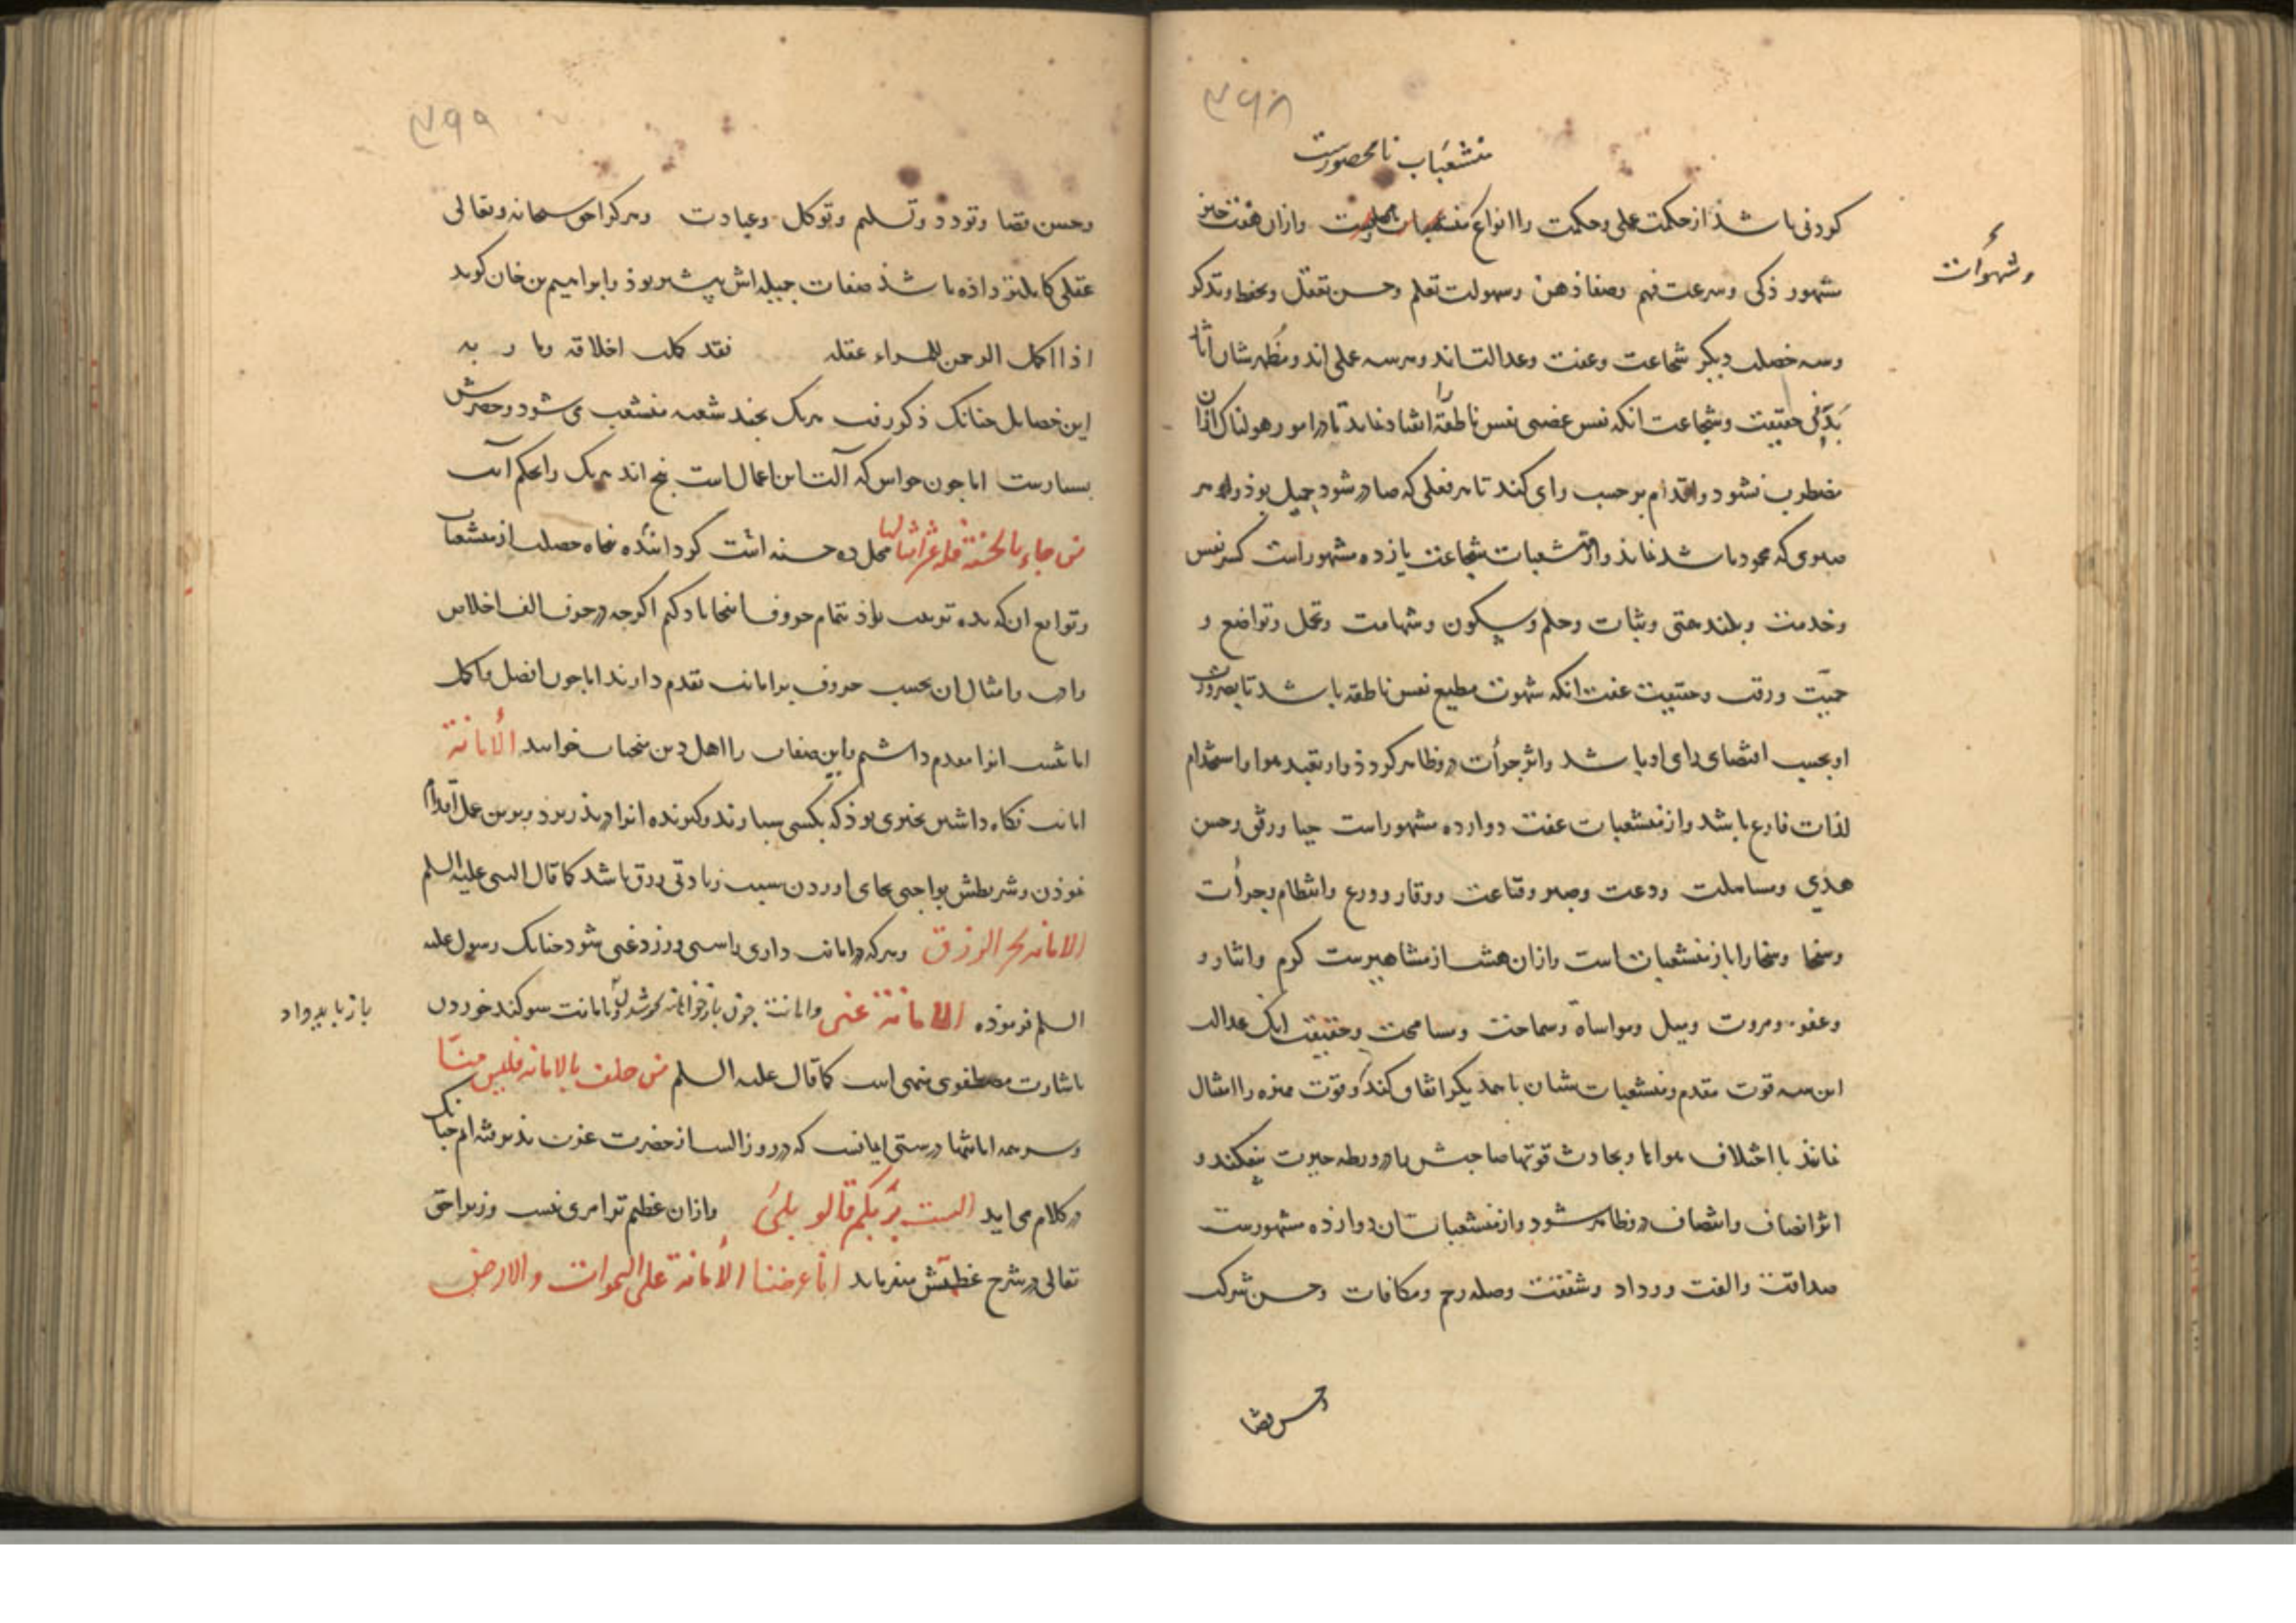 ۳۶۸
منشعبات نامحصورست
کردنی باشذ از حکمت عملی وحکمت را انواع وازان هفت خبر
وشهوات
مشهور ذکی وسرعت فهم وصفا ذهن وسهولت تعلم وحسن تعقل وتحفظ وتذکر
وسه خصلت دیکر شجاعت وعفت وعدالت اند وهرسه عملی اند ومظهرشان
حقیقت وشجاعت انکه نفس غضبی نفس ناطقه را نماید تا در امور هولناک ازان
مضطرب نشود واقدام برحسب رای کند تا هر فعلی که صادر شود جمیل بوذ وهر
صبوری که محمود باشد نماید واز منشعبات شجاعت یازده مشهور است کبر نفس
ونجدت وبلند همتی وثبات وحلم وسکون وشهامت وتحمل وتواضع و
حمیت ورقت وحقیقت عفت انکه شهوت مطیع نفس ناطقه باشد تا تصرفات
او بحسب اقتضای رای او باشد واثر جرأت درو ظاهر کردذ واز تقید هوا واستخدام
لذات فارغ باشد واز منشعبات عفت دوازده مشهور است حیا ورفق وحسن
هدی ومسالمت ودعت وصبر وقناعت ووقار وورع وانتظام وجرأت
وسخا وسخا را باز منشعبات است وازان هشت از مشاهیرست کرم وایثار و
وعفو ومروت ونیل ومواساة وسماحت ومسامحت وحقیقت عدالت
این سه قوت مقدم ومنشعبات شان با همدیکر اتفاق کند وقوت ممیزه را امتثال
نماید با اختلاف هواها وتجاذب قوتها صاحبش را در ورطه حیرت نیفکند و
اثر انصاف وانتصاف درو ظاهر شود واز منشعبات ان دوازده مشهورست
صداقت والفت ووداد وشفقت وصله رحم ومکافات وحسن شرکت
وحسن قضا
۳۶۹
وحسن قضا وتودد وتسلیم وتوکل وعبادت وهرکرا حق سبحانه وتعالی
عقلی کامل تر داذه باشذ صفات جمیله اش بیشتر بوذ وابراهیم بن خان کوید
اذا اکمل الرحمن للمراء عقله فقد کملت اخلاقه وما ر به
این خصایل جنانک ذکر رفت هریک بچند شعبه منشعب می شود وحصرش
بسیارست اما جون حواس که آلت این اعمال است پنج اند هریک را بحکم آیت
من جاء بالحسنة فله عشر امثالها محل ده حسنه است کردانیده پنجاه خصلت از منشعبات
وتوابع ان که بده ترتیب یابذ بتمام حروف اینجا یاد کنم اکرجه در حروف الف اخلاص
وادب وامثال ان بحسب حروف بر امانت تقدم دارند اما جون افضل واکمل
امانتست انرا مقدم داشتیم واین صفات را اهل دین منجیات خوانند الأمانة
امانت نکاه داشتن چیزی بوذ که بکسی سپارند وکیرنده انرا در پذیرد وبرین عمل اقدام
نموذن وشرطش بواجبی بجای اوردن سبب زیادتی رزق باشد کما قال النبی علیه السلم
الامانه تجر الرزق وهرکه در امانت داری راستی ورزد غنی شود جنانک رسول علیه
السلم فرموده الامانة غنی وامانت جون باز خواهند بامانت سوکند خوردن
باز باید داد
باشارت مصطفوی منهی است کما قال علیه السلم من حلف بالامانه فلیس منا
وسر همه امانتها درستی ایمانست که در روز الست از حضرت عزت پذیرفته ایم جنانک
در کلام می اید الست بربکم قالو بلی وازان عظیم تر امری نیست وزیرا حق
تعالی در شرح عظمتش میفرماید انا عرضنا الأمانة علی السموات والارض